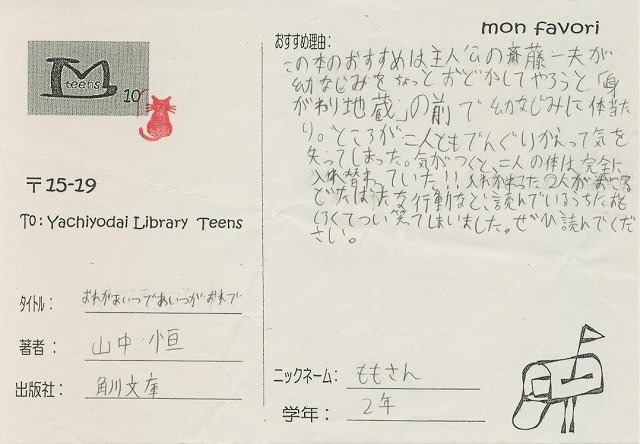 teens
10
〒15-19
To: Yachiyodai Library Teens
タイトル: おれがあいつであいつがおれで
著者: 山中 恒
出版社: 角川文庫
mon favori
おすすめ理由:
この本のおすすめは主人公の斎藤一夫が
幼なじみをちょっとおどかしてやろうと「身
がわり地蔵」の前で幼なじみに体当た
り。ところが二人ともでんぐりかえって気を
失ってしまった。気がつくと、二人の体は完全に
入れ替わっていた!! 入れかわった2人が
行動など、読んでいるうちに
くてつい笑ってしまいました。ぜひ読んでくだ
さい。
ニックネーム: ももさん
学年: 2年